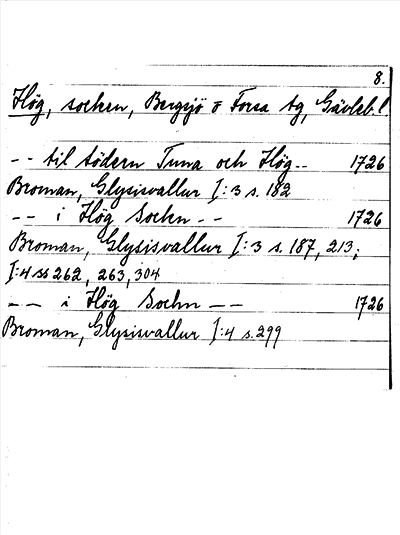 8.
Hög, socken, Bergsjö o Forsa tg, Gävleb.l.
-- til södern Tuna och Hög -- 1726
Broman, Glysisvallur I:3 s. 182
-- i Hög Sochn -- 1726
Broman, Glysisvallur I:3 s. 187, 213;
I:4 ss 262, 263, 304
-- i Hög Sochn -- 1726
Broman, Glysisvallur I:4 s. 299